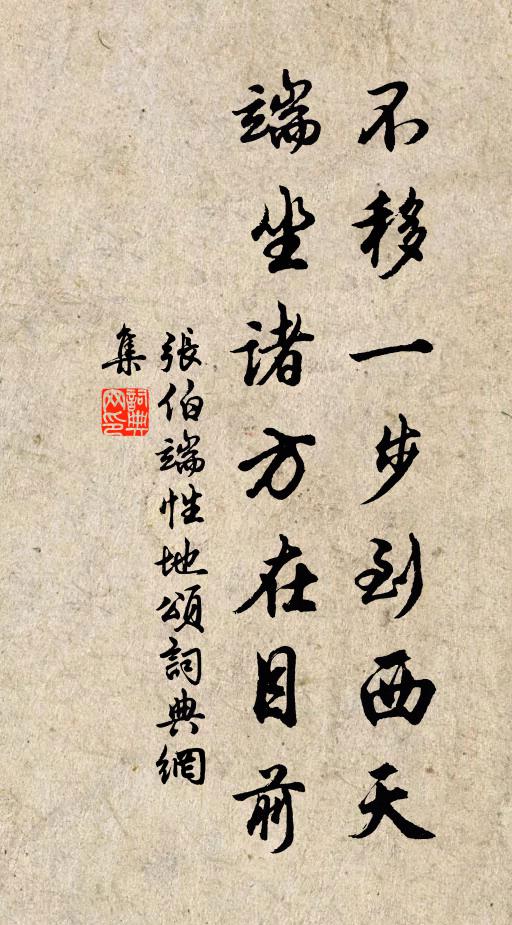 不移一步到西天
端坐诸方在目前
張伯端性地頌詞典網
集
詞典網印